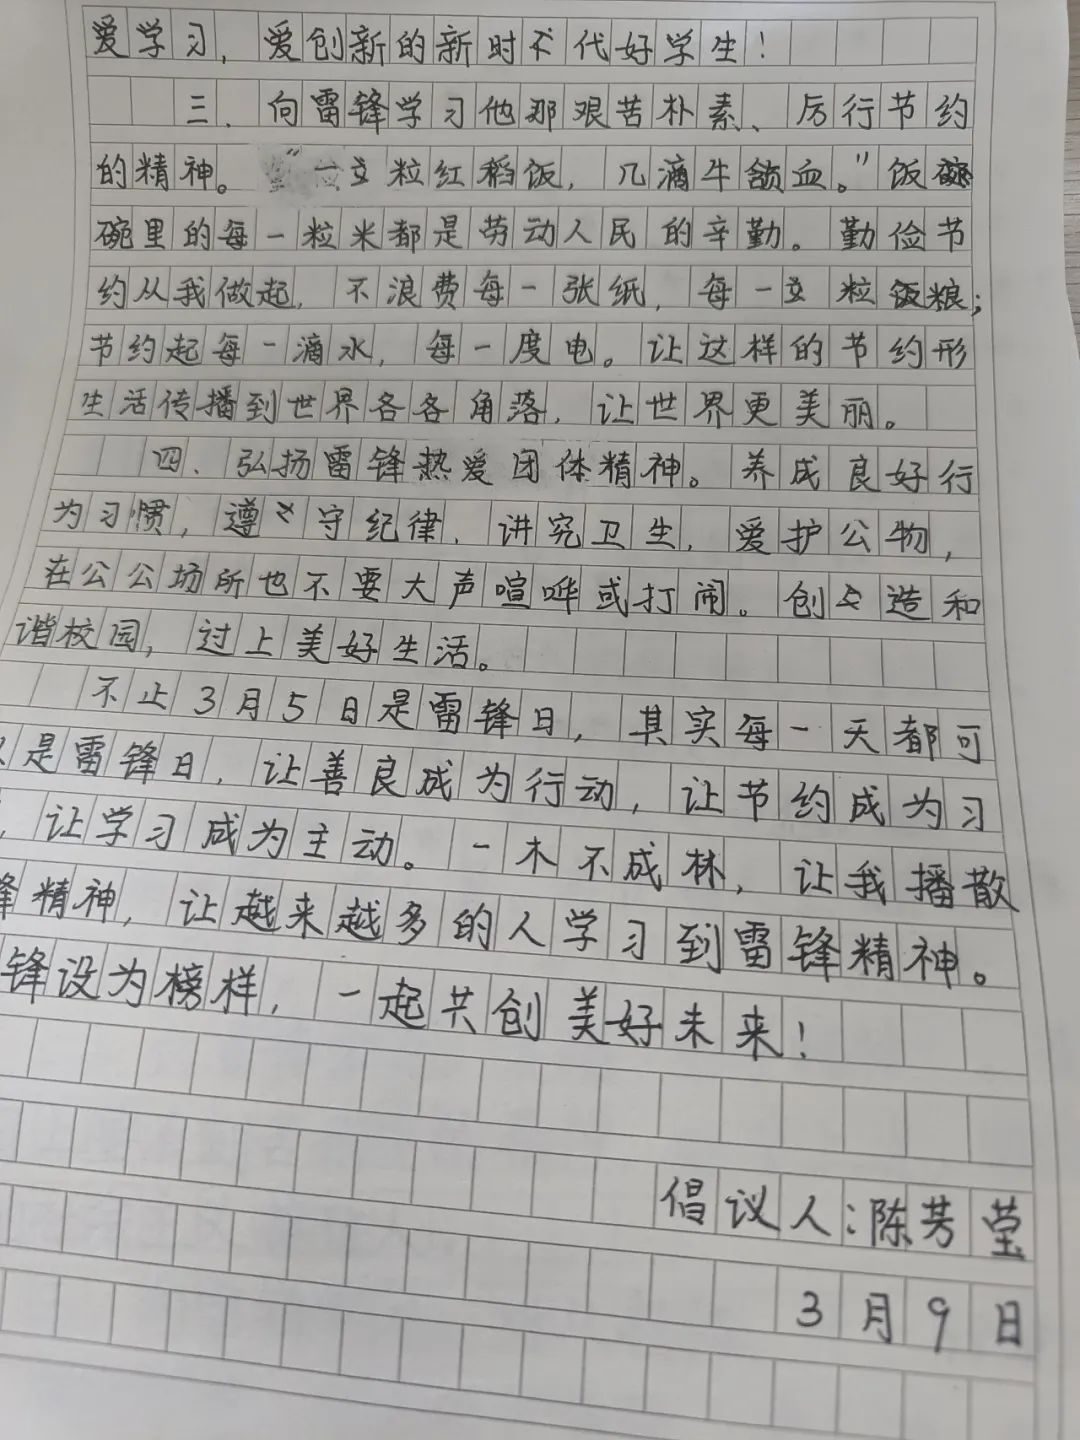 爱学习，爱创新的新时代好学生！
三、向雷锋学习他那艰苦朴素、厉行节约
的精神。“粒红稻饭，几滴牛颔血。”饭
碗里的每一粒米都是劳动人民的辛勤。勤俭节
约从我做起，不浪费每一张纸，每一粒饭粮；
节约起每一滴水，每一度电。让这样的节约形
生活传播到世界各各角落，让世界更美丽。
四、弘扬雷锋热爱团体精神。养成良好行
为习惯，遵守纪律，讲究卫生，爱护公物，
在公公场所也不要大声喧哗或打闹。创造和
谐校园，过上美好生活。
不止3月5日是雷锋日，其实每一天都可
是雷锋日，让善良成为行动，让节约成为习
，让学习成为主动。一木不成林，让我播散
锋精神，让越来越多的人学习到雷锋精神。
锋设为榜样，一起共创美好未来！
倡议人：陈芳莹
3月9日